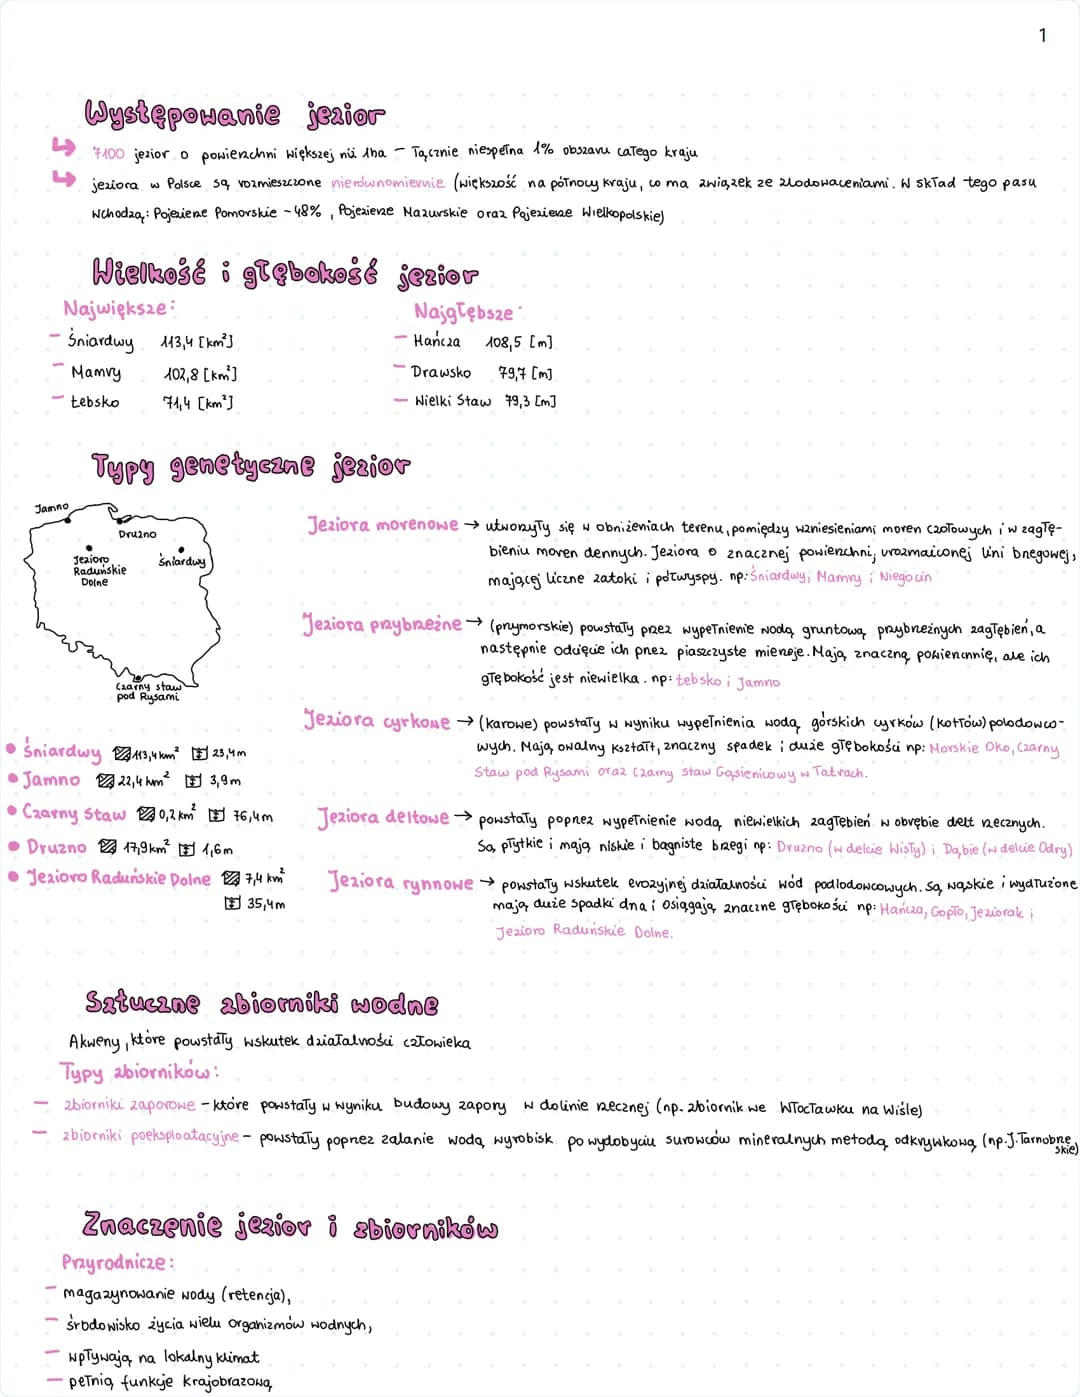 1
Występowanie jezior
↳ 7100 jezior o powierzchni większej niż 1ha – Łącznie niespełna 1% obszaru całego kraju
↳ jeziora w Polsce są rozmieszczone nierównomiernie (większość na północy kraju, co ma związek ze zlodowaceniami. W skład tego pasu
wchodzą: Pojezierze Pomorskie ~48%, Pojezierze Mazurskie oraz Pojezierze Wielkopolskie)
Wielkość i głębokość jezior
Największe:
– Śniardwy 113,4 [km²]
– Mamry 102,8 [km²]
– Łebsko 71,4 [km²]
Najgłębsze:
– Hańcza 108,5 [m]
– Drawsko 79,7 [m]
– Wielki Staw 79,3 [m]
Typy genetyczne jezior
Jamno
Druzno
Jezioro
Raduńskie
Dolne
Śniardwy
Czarny staw
pod Rysami
• Śniardwy 113,4 km² 23,4m
• Jamno 22,4 km² 3,9m
• Czarny Staw 0,2 km² 76,4m
• Druzno 17,9km² 1,6m
• Jezioro Raduńskie Dolne 7,4 km²
35,4m
Jeziora morenowe → utworzyły się w obniżeniach terenu, pomiędzy wzniesieniami moren czołowych i w zagłę-
bieniu moren dennych. Jeziora o znacznej powierzchni, urozmaiconej lini brzegowej,
mającej liczne zatoki i półwyspy. np: Śniardwy, Mamry i Niegocin
Jeziora przybrzeżne → (przymorskie) powstały przez wypełnienie wodą gruntową przybrzeżnych zagłębień, a
następnie odcięcie ich przez piaszczyste mierzeje. Mają znaczną powierzchnię, ale ich
głębokość jest niewielka. np: Łebsko i Jamno
Jeziora cyrkowe → (karowe) powstały w wyniku wypełnienia wodą górskich cyrków (kotłów) polodowco-
wych. Mają owalny kształt, znaczny spadek i duże głębokości np: Morskie Oko, Czarny
Staw pod Rysami oraz Czarny staw Gąsienicowy w Tatrach.
Jeziora deltowe → powstały poprzez wypełnienie wodą niewielkich zagłębień w obrębie delt rzecznych.
Są płytkie i mają niskie i bagniste brzegi np: Druzno (w delcie Wisły) i Dąbie (w delcie Odry)
Jeziora rynnowe → powstały wskutek erozyjnej działalności wód podlodowcowych. Są wąskie i wydłużone
mają duże spadki dna i osiągają znaczne głębokości np: Hańcza, Gopło, Jeziorak i
Jezioro Raduńskie Dolne.
Sztuczne zbiorniki wodne
Akweny, które powstały wskutek działalności człowieka
Typy zbiorników:
– zbiorniki zaporowe – które powstały w wyniku budowy zapory w dolinie rzecznej (np. zbiornik we Włocławku na Wiśle)
– zbiorniki poeksploatacyjne – powstały poprzez zalanie wodą wyrobisk po wydobyciu surowców mineralnych metodą odkrywkową (np. J. Tarnobrze
skie)
Znaczenie jezior i zbiorników
Przyrodnicze:
– magazynowanie wody (retencja),
– środowisko życia wielu organizmów wodnych,
– wpływają na lokalny klimat
– pełnią funkcje krajobrazową